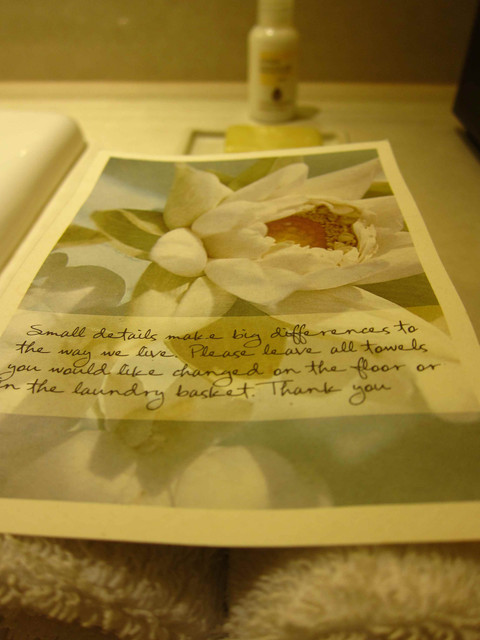 Small details make big differences to
the way we live. Please leave all towels
you would like changed on the floor or
in the laundry basket. Thank you